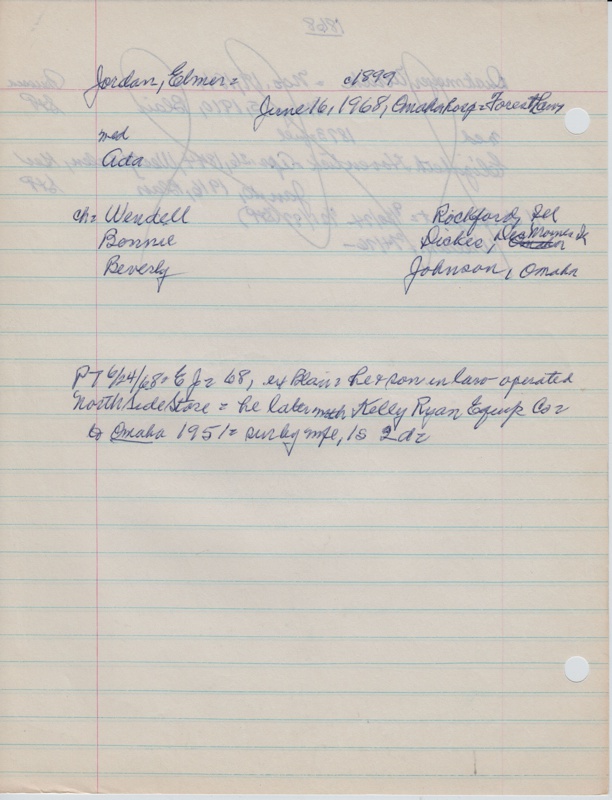 Jordan, Elmer = c1899
June 16, 1968, Omaha hosp = Forest Lawn
med
Ada
ch = Wendell Rockford, Ill
Bonnie Dickes, Des Moines Ia
Beverly Johnson, Omaha
PT 6/24/68 = E J = 68, ex Blair = he & son in law operated
North Side Store = he later Kelly Ryan Equip Co =
to Omaha 1951 = sur by wfe, 1s 2d =